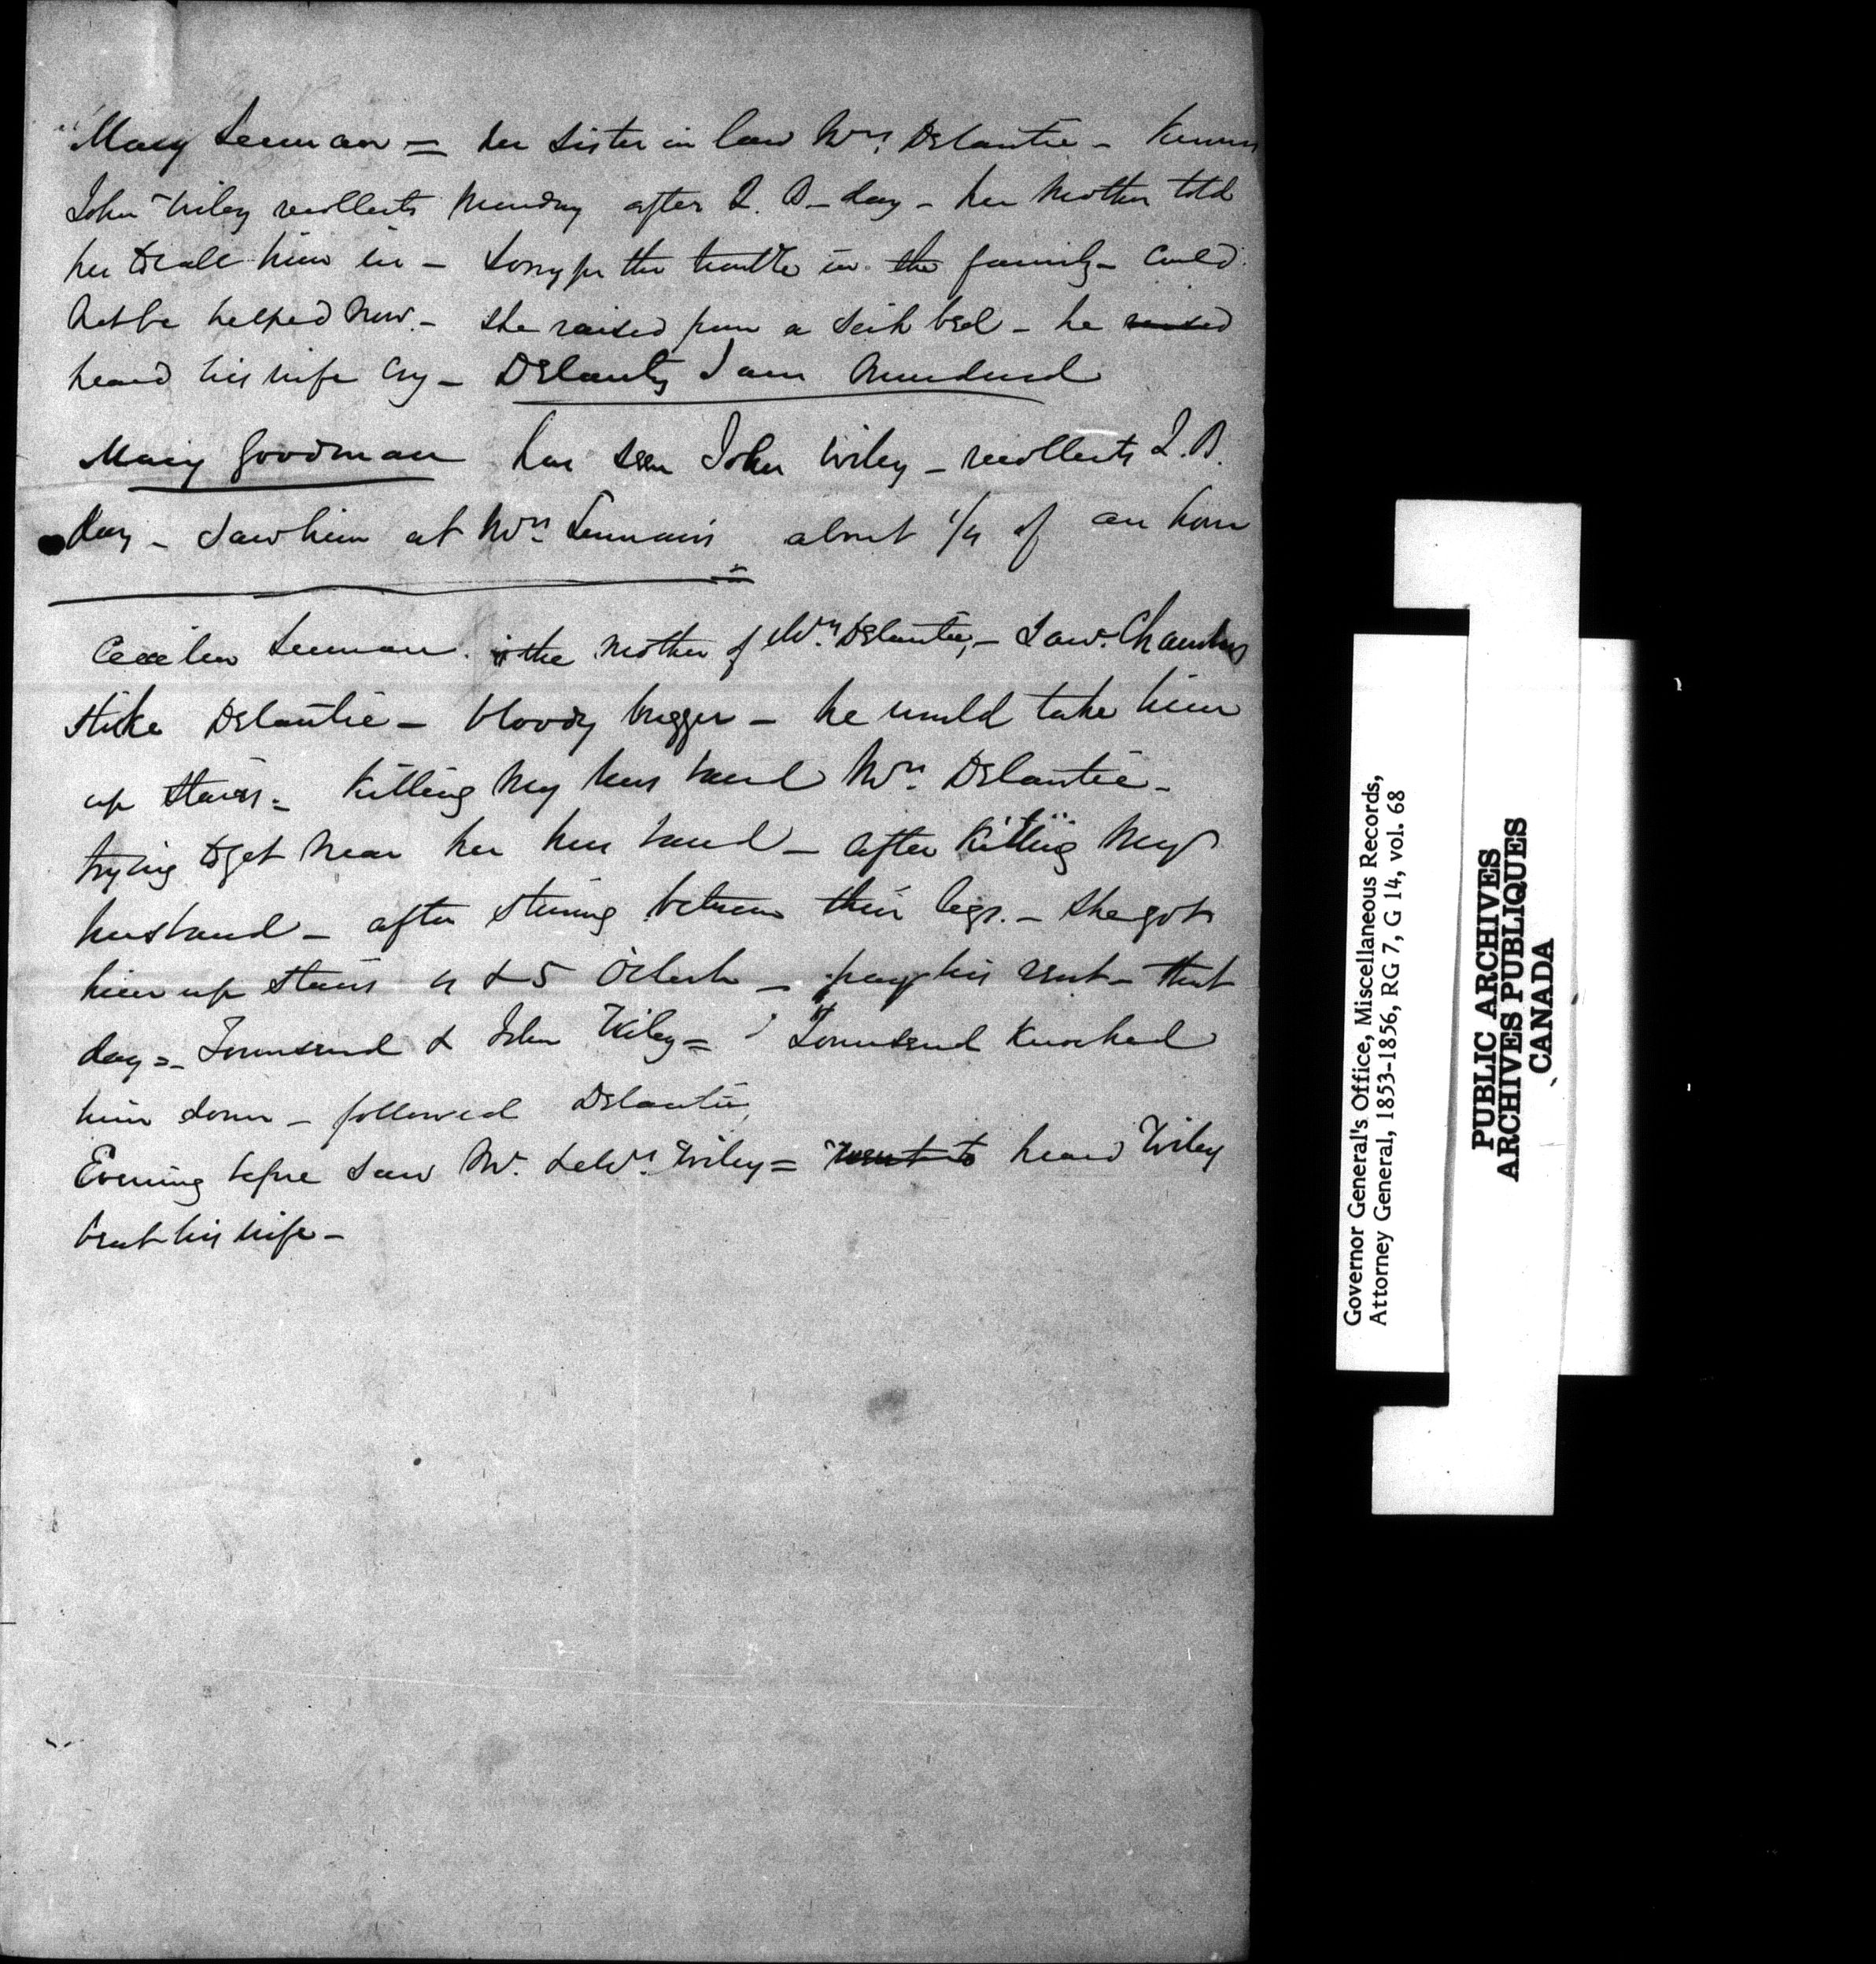 Mary Leenan = her sister in law Mrs. Delantie - Knows
John Wiley recollects Monday after Q. B - day - her mother told
her to call him in - sorry for the trouble in the family - could
not be helped now. - She raised from a sick bed - he raised
heard his wife cry - Delanty I am Murdered
Mary Goodman has seen John Wiley - recollects Q. B.
day - saw him at Mrs. Leenan's about 1/4 of an hour
Leenan. is the mother of Mrs. Delantie, - saw Chambers
strike Delantie - bloody bugger - he would take him
up stairs = Killing my husband Mrs. Delantie -
trying to get near her husband - after Killing my
husband - after between their legs. - She got
him up stairs 4 & 5 O'Clock - pay his rent - that
day = Townsend & John Wiley = Townsend Knocked
him down - followed Delantie,
Evening before saw Mr. & Mrs. Wiley = went to heard Wiley
beat his wife -
Governor General's Office, Miscellaneous Records,
Attorney General, 1853-1856, RG 7, G 14, vol. 68
PUBLIC ARCHIVES
ARCHIVES PUBLIQUES
CANADA